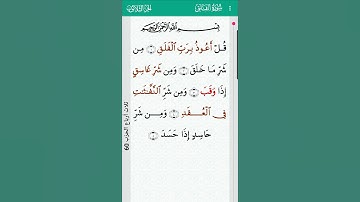 سُورَةُ الفَلَقِ
الجزء الثلاثون
بِسْمِ ٱللَّهِ ٱلرَّحْمَٰنِ ٱلرَّحِيمِ
قُلْ أَعُوذُ بِرَبِّ ٱلْفَلَقِ ۝ مِن
شَرِّ مَا خَلَقَ ۝ وَمِن شَرِّ غَاسِقٍ
إِذَا وَقَبَ ۝ وَمِن شَرِّ ٱلنَّفَّٰثَٰتِ
فِى ٱلْعُقَدِ ۝ وَمِن شَرِّ
حَاسِدٍ إِذَا حَسَدَ ۝
ثلاث أرباع الحزب 60